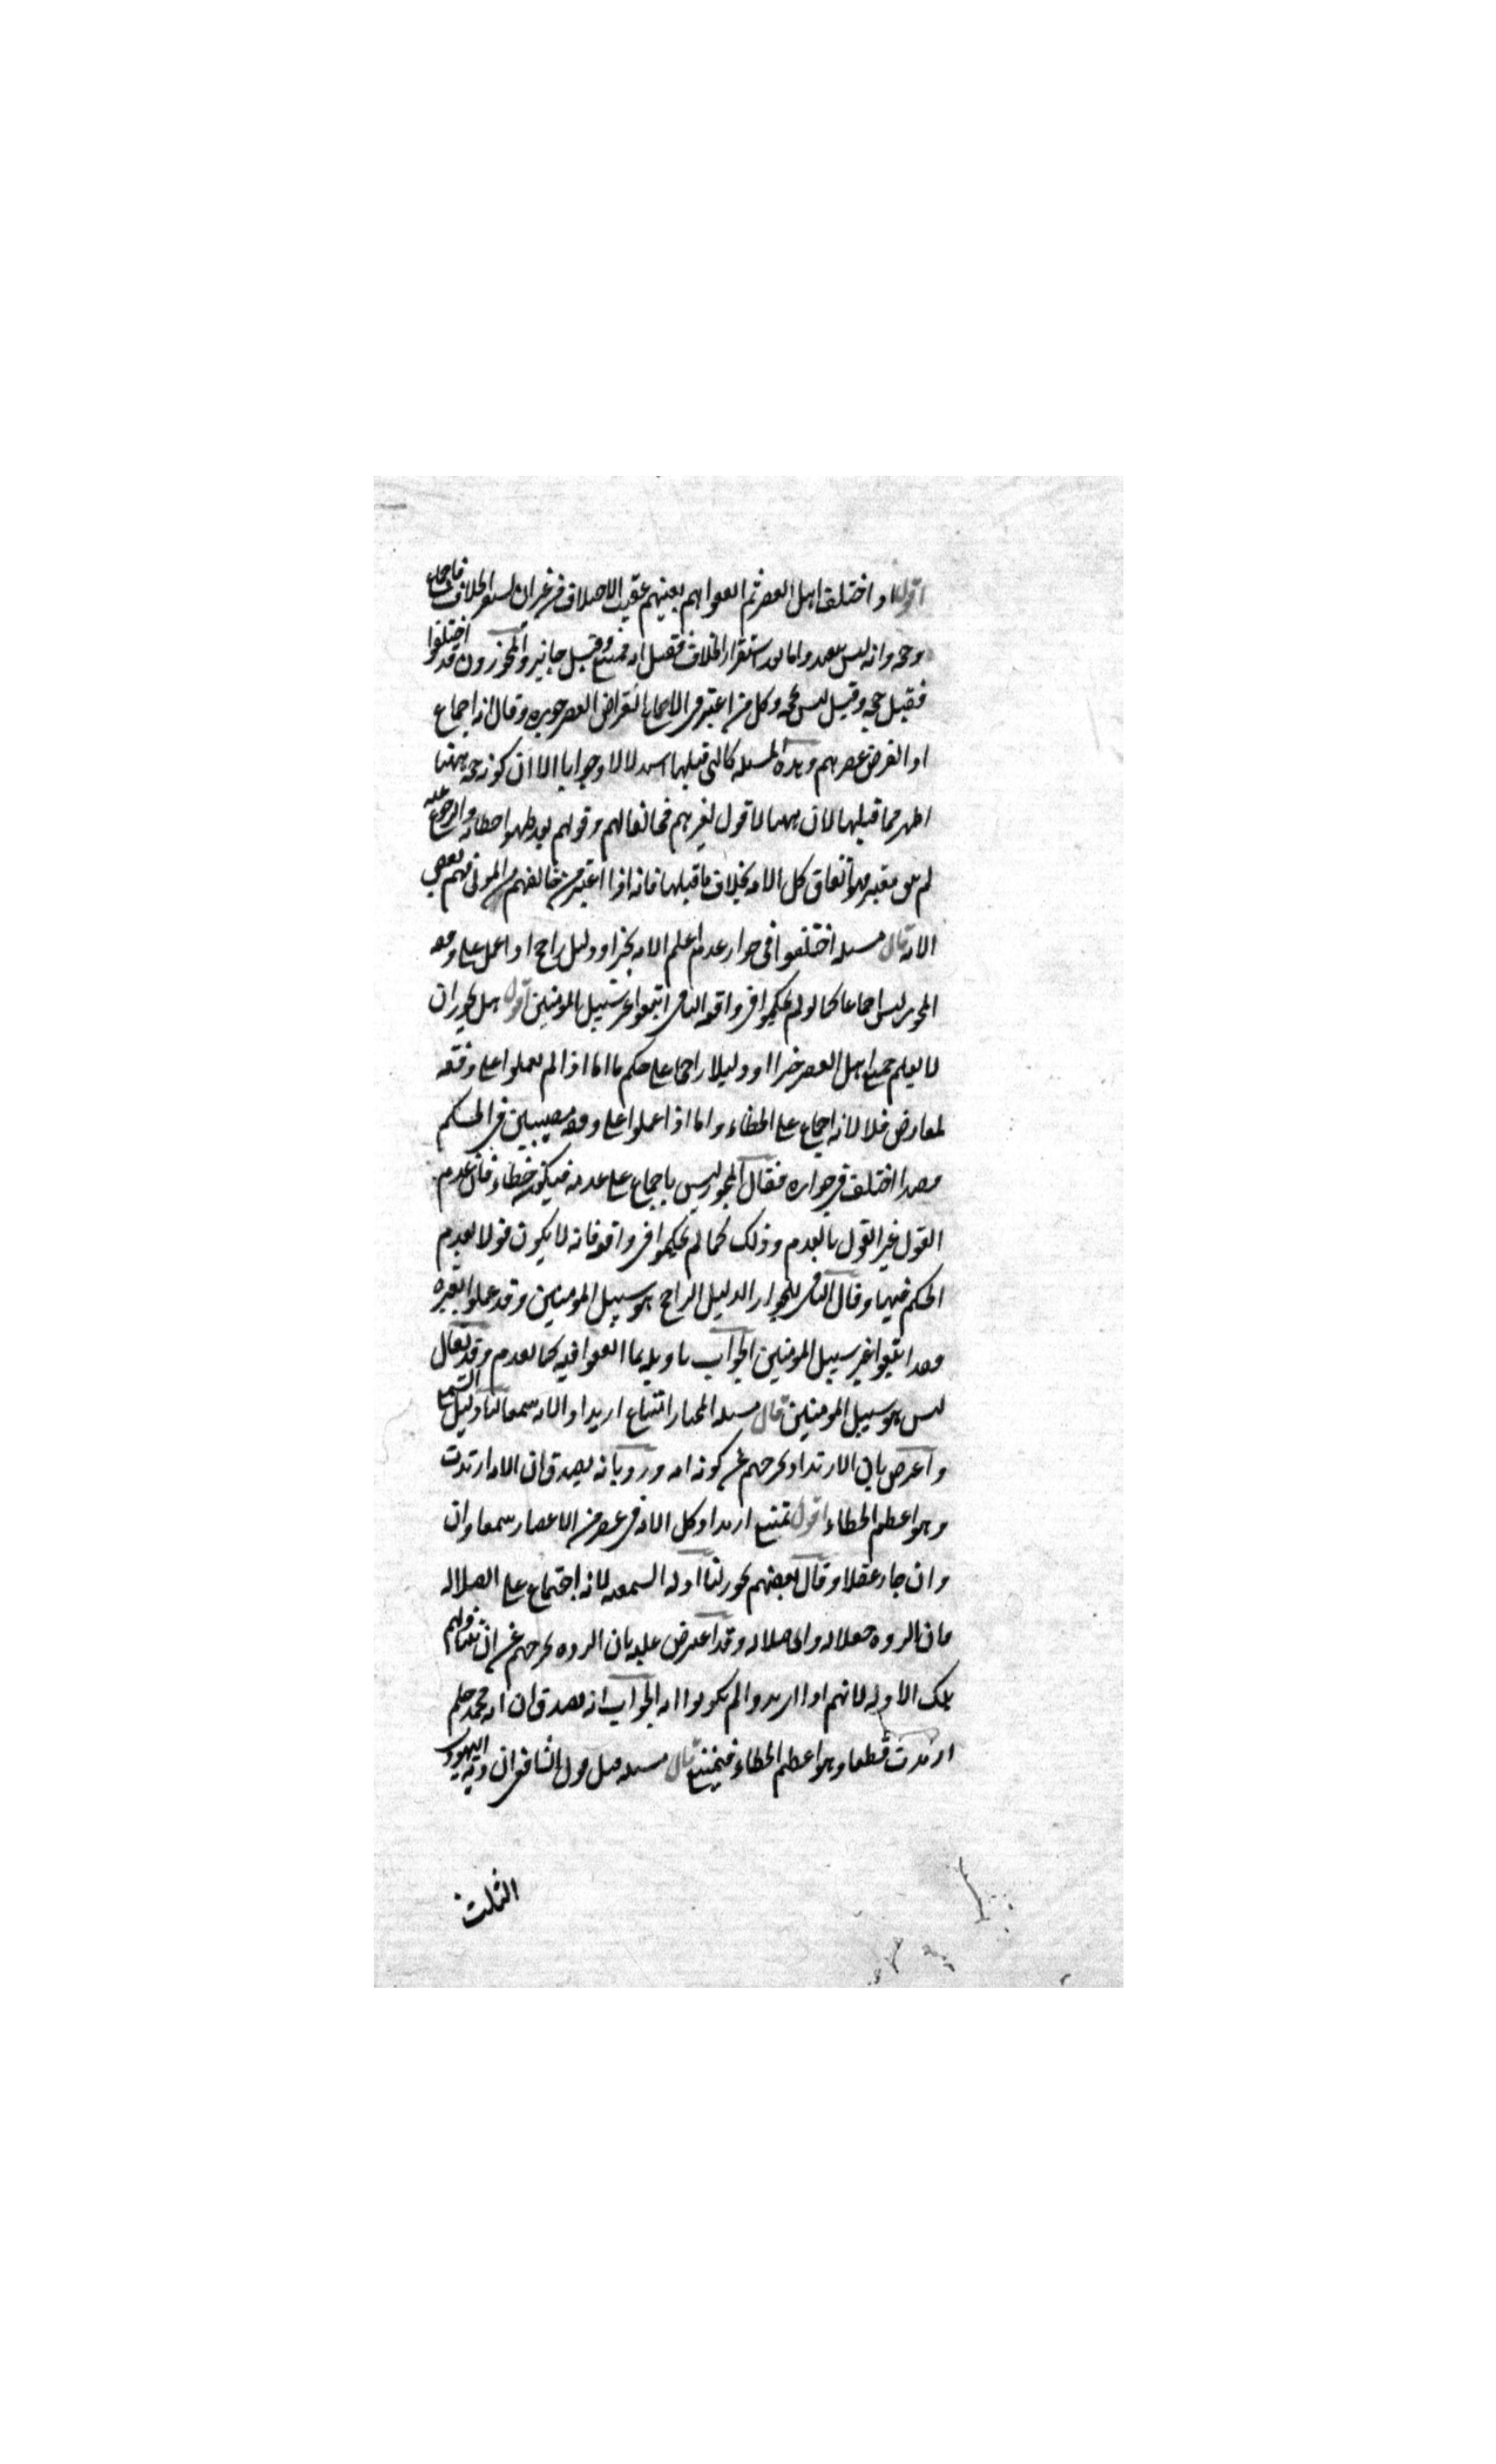 اقول اذا اختلف اهل العصر ثم اتفقوا هم بعينهم عقيب الاختلاف من غير ان يستقر الخلاف فاجماع
وحجة وانه ليس ببعيد واما بعد استقرار الخلاف فقيل انه ممتنع وقيل جايز والمجوزون قد اختلفوا
فقيل حجة وقيل ليس بحجة وكل من اعتبر في الاجماع انقراض العصر جوزه وقال انه اجماع
اذا انقرض عصرهم وهذه المسئلة كالتي قبلها استدلالا وجوابا الا ان كونه حجة ههنا
اظهر مما قبلها لان ههنا لا قول لغيرهم مخالفا لهم وقولهم بعد ظهور خطائه والرجوع عنه
لم يبق معتبرا فهو اتفاق كل الامة بخلاف ما قبلها فانه اذا اعتبر من خالفهم من الموتى فهم بعض
الامة قال مسئلة اختلفوا في جواز عدم علم الامة بخبر او دليل راجح اذا عمل على وفقه
المجوز ليس اجماعا كما لو لم يحكموا في واقعة النافي اتبعوا غير سبيل المومنين اقول هل يجوز ان
لا يعلم جميع اهل العصر خبرا او دليلا راجحا على حكم ما اما اذا لم يعملوا على وفقه
لمعارض فلا لانه اجماع على الخطاء واما اذا عملوا على وفقه مصيبين في الحكم
فهذا اختلف في جوازه فقال المجوز ليس باجماع على عدمه فيكون خطاء فان عدم
القول غير القول بالعدم وذلك كما لم يحكموا في واقعة فانه لا يكون قولا بعدم
الحكم فيها وقال النافي للجواز الدليل الراجح هو سبيل المومنين وقد عملوا بغيره
فقد اتبعوا غير سبيل المومنين الجواب تاويله بما اتفقوا فيه كما تقدم وقد يقال
ليس هو سبيل المومنين قال مسئلة المختار امتناع ارتداد الامة سمعا لنا دليل السمع
واعترض بان الارتداد يخرجهم عن كونه امة ورد بانه يصدق ان الامة ارتدت
وهو اعظم الخطاء اقول يمتنع ارتداد كل الامة في عصر من الاعصار سمعا وان
وان جاز عقلا وقال بعضهم يجوز لنا ادلة السمعية لانه اجتماع على الضلالة
فان الردة ضلالة واي ضلالة وقد اعترض عليه بان الردة تخرجهم عن ان تتناولهم
تلك الادلة لانهم اذا ارتدوا لم يكونوا امة الجواب انه يصدق ان امة محمد صلعم
ارتدت قطعا وهو اعظم الخطاء فيمتنع قال مسئلة مثل قول الشافعي ان دية اليهودي
الثلث